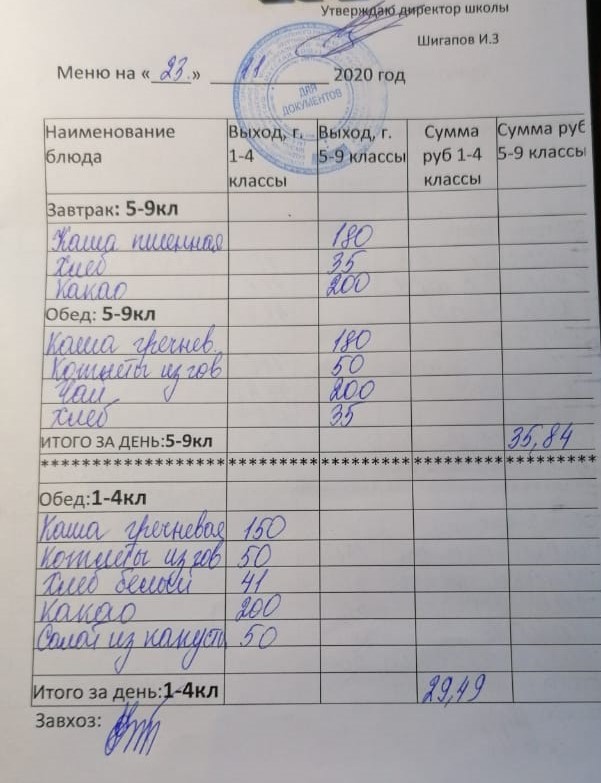 Утверждаю директор школы
Шигапов И.З
Меню на « 23. » 11 2020 год
ДЛЯ ДОКУМЕНТОВ
Наименование блюда Выход, г. 1-4 классы Выход, г. 5-9 классы Сумма руб 1-4 классы Сумма руб 5-9 классы
Завтрак: 5-9кл
Каша пшенная 180
Хлеб 35
Какао 200
Обед: 5-9кл
Каша гречнев. 180
Котлеты из гов 50
Чай 200
Хлеб 35
ИТОГО ЗА ДЕНЬ:5-9кл 35,84
Обед:1-4кл
Каша гречневая 150
Котлеты из гов 50
Хлеб белый 41
Какао 200
Салат из капусты 50
Итого за день:1-4кл 29,49
Завхоз: